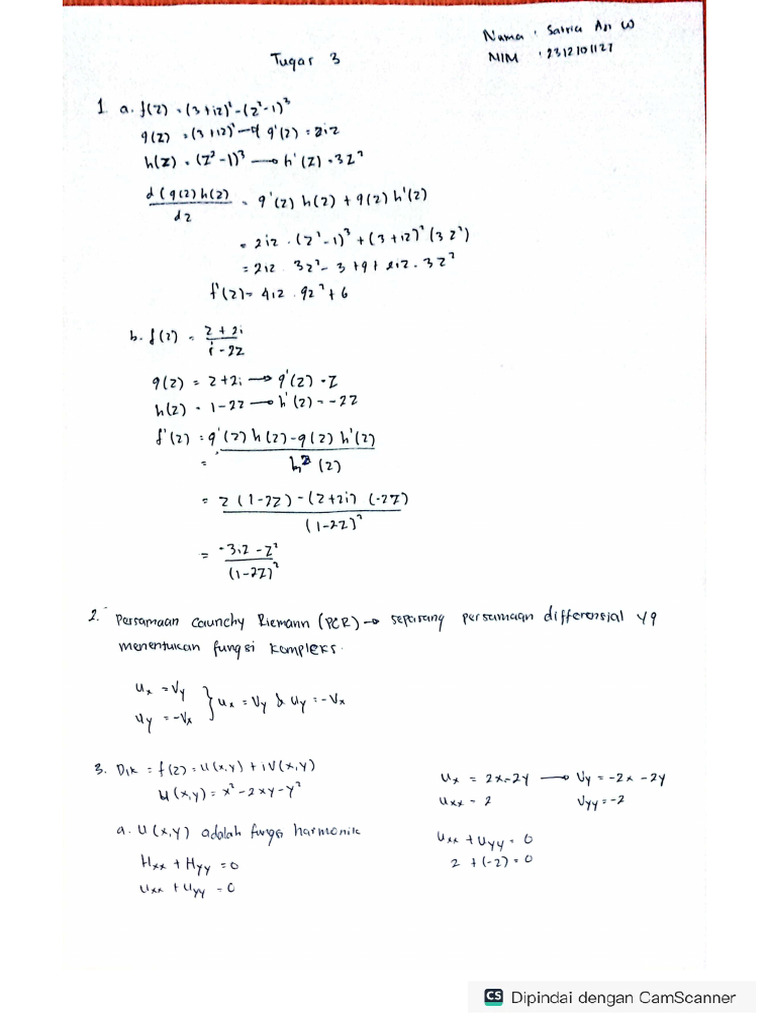 Nama : Satria Aji W
NIM : 2312101127
Tugas 3
1. a. f(z) = (3+iz)² - (z²-1)³
g(z) = (3+iz)² → g'(z) = 2iz
h(z) = (z²-1)³ → h'(z) = 3z²
d(g(z)h(z))/dz = g'(z) h(z) + g(z) h'(z)
= 2iz · (z²-1)³ + (3+iz)² (3z²)
= 2iz · 3z² - 3 + 9 + 2iz · 3z²
f'(z) = 4iz · 9z² + 6
b. f(z) = z + 2i / i - 2z
g(z) = z+2i → g'(z) = z
h(z) = 1-2z → h'(z) = -2z
f'(z) = g'(z) h(z) - g(z) h'(z) / h²(z)
=
= z (1-2z) - (z+2i) (-2z) / (1-2z)²
= -3iz - z² / (1-2z)²
2. Persamaan Caunchy Riemann (PCR) → sepasang persamaan differensial yg
menentukan fungsi kompleks.
Ux = Vy
Uy = -Vx } Ux = Vy & Uy = -Vx
3. Dik = f(z) = U(x,y) + iV(x,y)
U(x,y) = x² - 2xy - y²
a. U(x,y) adalah fungsi harmonik
Hxx + Hyy = 0
Uxx + Uyy = 0
Ux = 2x - 2y → Vy = -2x - 2y
Uxx = 2 Vyy = -2
Uxx + Uyy = 0
2 + (-2) = 0
CS Dipindai dengan CamScanner